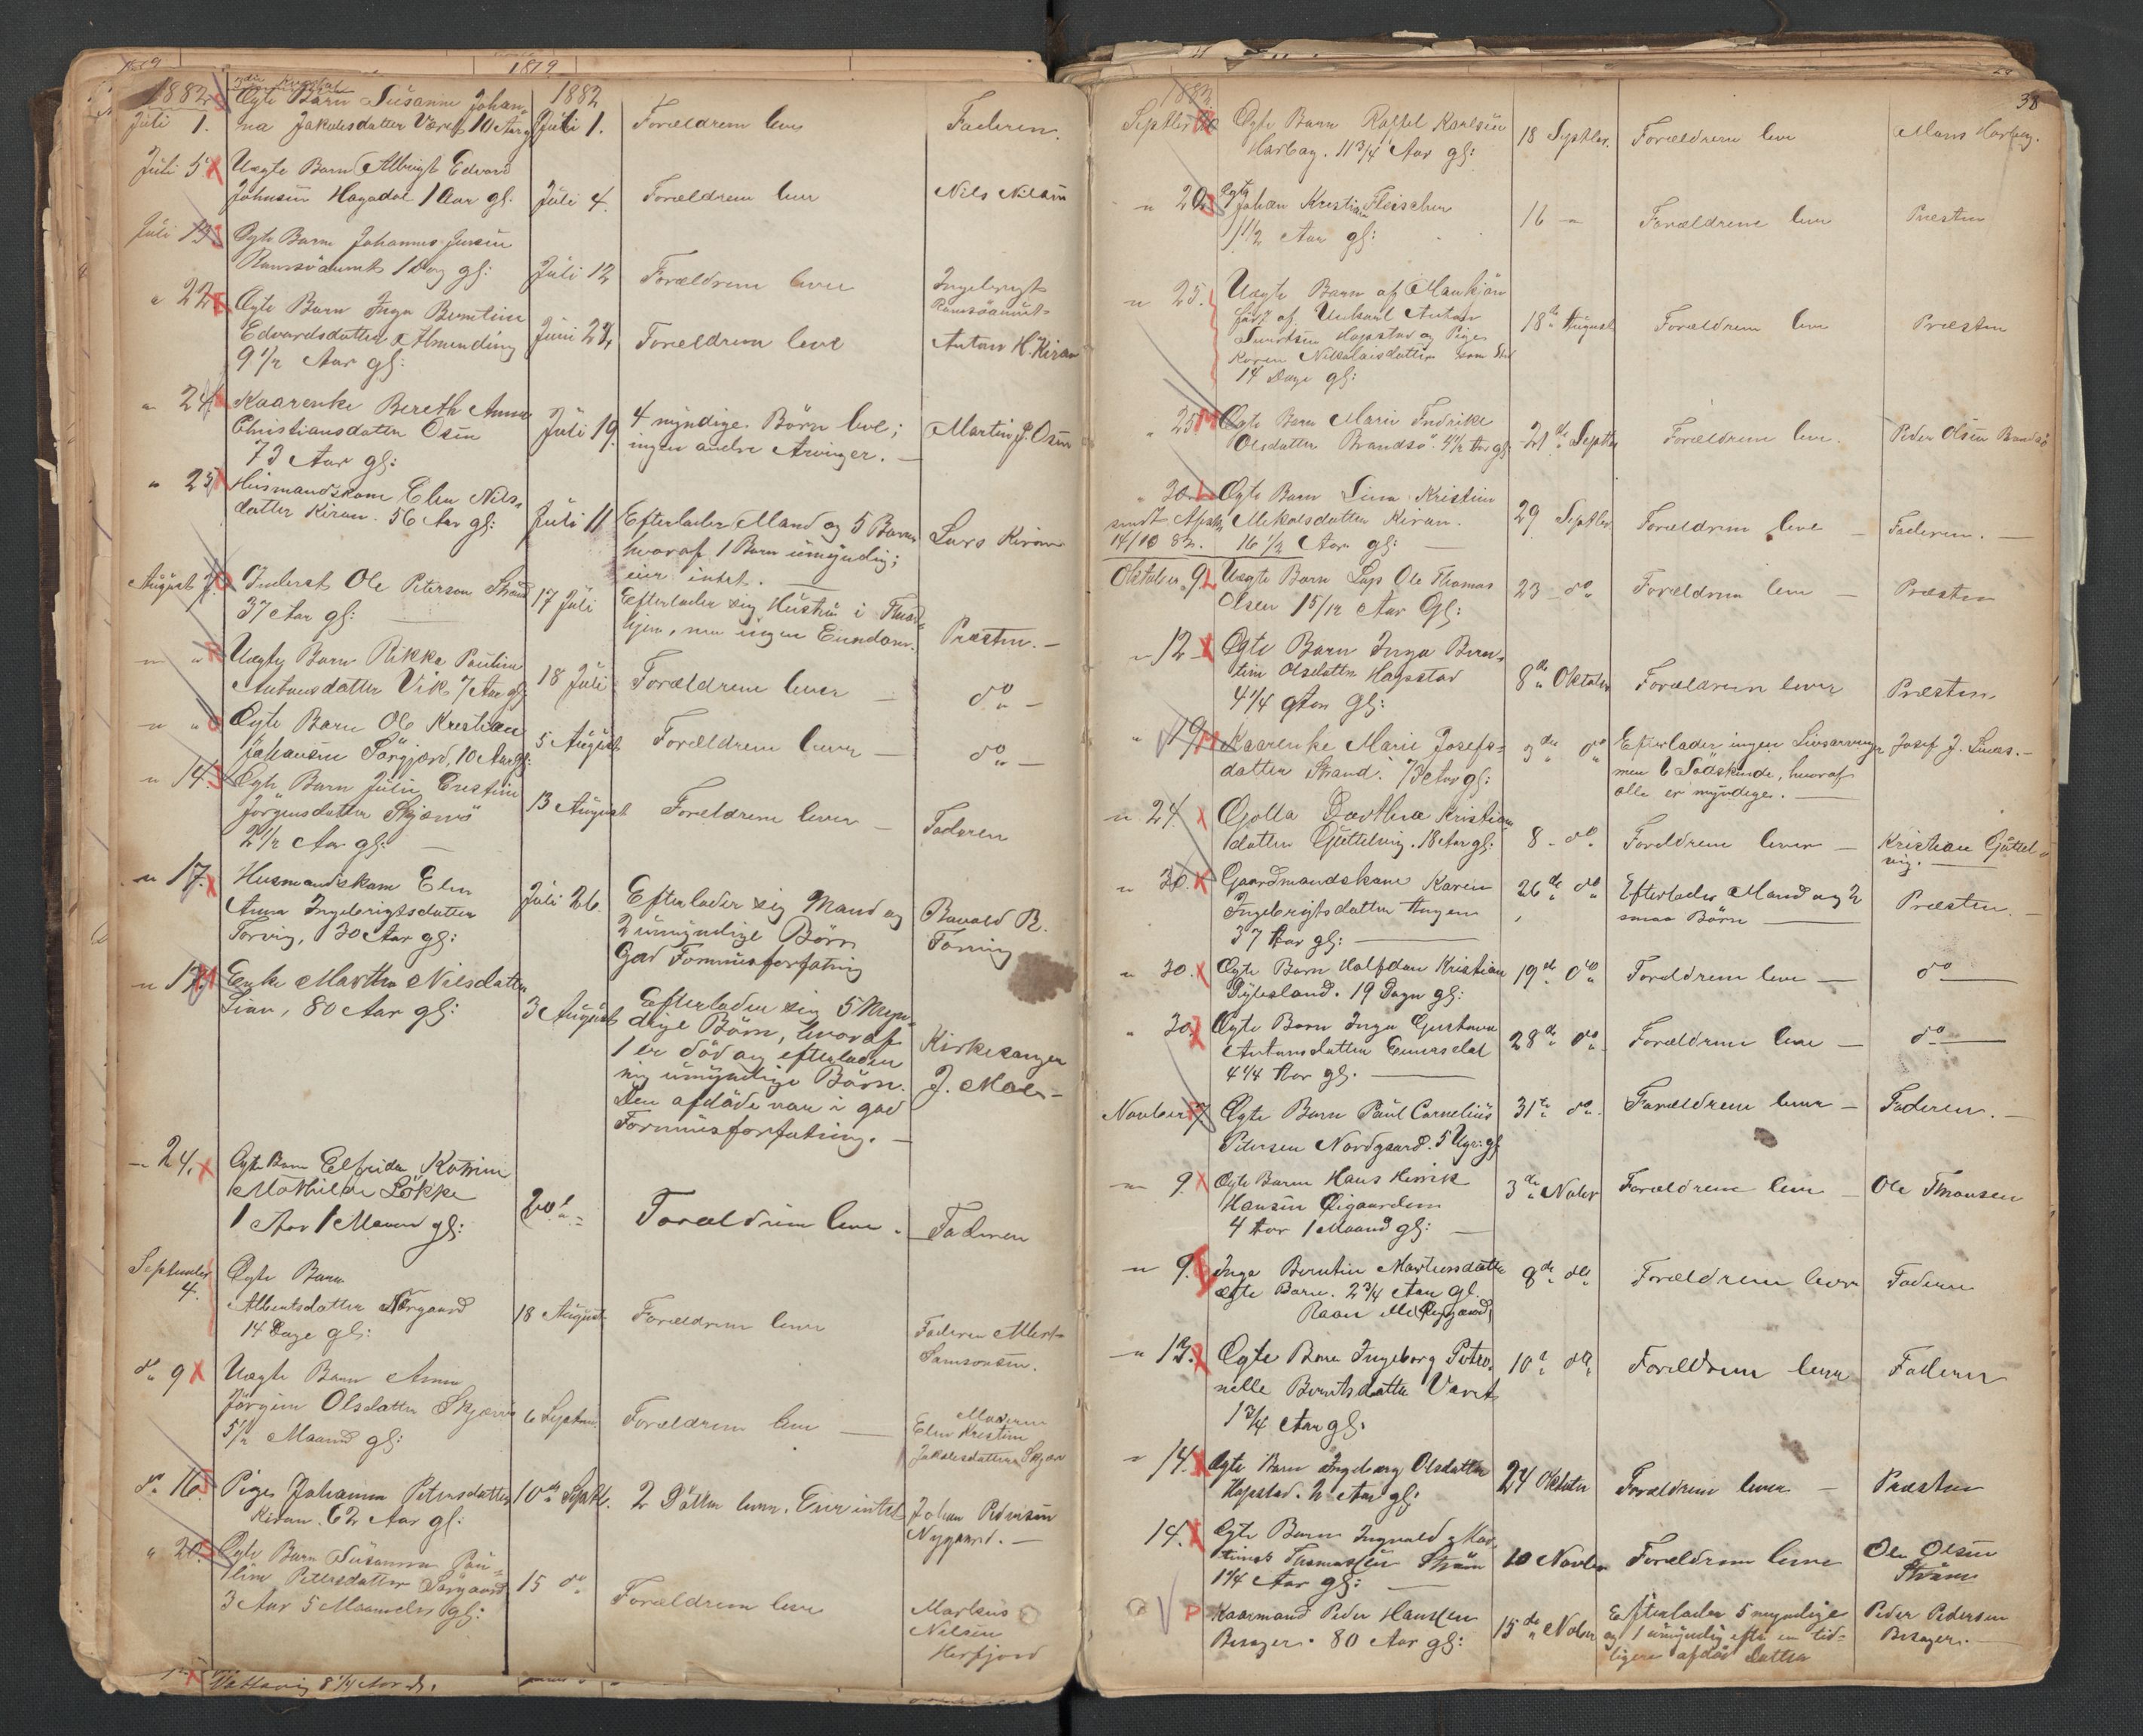 1879
1882
1882
Juli 1.
Ægte Barn Susanna Johan-
na Jakobsdatter Været 10 Aar gl
Juli 1.
Forældrene leve
Faderen.
Juli 5
Uægte Barn Albrigt Edvard
Johnsen Hagadal 1 Aar gl.
Juli 4.
Forældrene leve
Nils Nilsen
Juli 13
Ægte Barn Johannes Jensen
1 Dag gl:
Juli 12
Forældrene lever
Ingebrigt
" 22
Ægte Barn Inga Berntine
Edvardsdatter Almending
9 1/2 Aar gl:
Juni 24
Forældrene leve
Anton H. Kiran
" 24
Kaarenke Bereth Anna
Christiansdatter Osen
73 Aar gl:
Juli 19.
4 myndige Börn leve;
ingen andre Arvinger. —
Martin J. Osen
" 25
Husmandskone Elen Nils-
datter Kiran. 56 Aar gl:
Juli 11
Efterlader Mand og 5 Börn
hvoraf 1 Barn umyndig;
eier intet. —
Lars Kiran
August 7.
Inderst Ole Peterson Strand
37 Aar gl:
17 Juli
Efterlader sig Hustru i Thrond-
hjem, men ingen Eiendom.
Præsten. —
" "
Uægte Barn Rikka Pauline
Antonsdatter Vik 7 Aar gl
18 Juli
Forældrene lever —
do —
" "
Ægte Barn Ole Kristian
Johansen Sörgjerd, 10 Aar gl:
5 August
Forældrene lever —
do —
" 14.
Ægte Barn Julie Enstine
Jörgensdatter Skjærvö
2 1/2 Aar gl: —
13 August
Forældrene lever —
Faderen
" 17.
Husmandskone Elen
Anna Ingebrigtsdatter
Torvig, 30 Aar gl:
Juli 26.
Efterlader sig Mand og
2 umyndige Börn
God Formuesforfatning
R.
" 17.
Enke Martha Nilsdatter
Lian, 80 Aar gl:
3 August
Efterlader sig 5 Myn-
dige Börn, hvoraf
1 er död og efterlader
sig umyndige Börn.
Den afdöde var i god
Formuesforfatning. —
Kirkesanger
J. Moe —
" 24.
Ægte Barn Elfrida Katrine
Mathilde Lökke
1 Aar 1 Maaned gl:
20
Forældrene leve.
Faderen
September
4.
Ægte Barn
Albertsdatter Norgaard
14 Dage gl:
18 August
Forældrene leve
Faderen Albert
Samsonsen.
do 9
Uægte Barn Anna
Jörgine Olsdatter Skjærvö
5 1/2 Maaned gl:
6 Septem
Forældrene leve —
Moderen
Elen Kristine
Jakobsdatter Skjær
do 16.
Pige Johanna Petersdatter
Kiran. 62 Aar gl:
10de Septbr.
2 Döttre lever. Eier intet
Johan
Nygaard. —
" 20.
Ægte Barn Susanna Pau-
line Petersdatter Sörgaard
3 Aar 5 Maaneder gl:
15 do
Forældrene leve
Markus
Nilsen
Herfjord
8 1/4 Aar gl.
38
1882
Septbr
Ægte Barn Raffel Karlsen
Harbag. 11 3/4 Aar gl:
18 Septbr.
Forældrene leve
Mons Harbag.
" 20
Ægte
Johan Kristian Fleischer
1 1/2 Aar gl:
16 "
Forældrene leve
Præsten
" 25.
Uægte Barn af Mankjön
født af Unkarl Anton
Hopstad og Pige
Karen Nikolaisdatter
14 Dage gl:
18de August
Forældrene leve
Præsten
" 25
Ægte Barn Marie Fredrikke
Olsdatter Brandsö. 4 1/2 Aar gl:
21de Septbr
Forældrene leve.
Peder Olsen Brandsö
" 30.
sendt Afskr.
14/10 82.
Ægte Barn Lina Kristine
Mikalsdatter Kiran.
16 1/2 Aar gl: —
29 Septbr
Forældrene leve —
Faderen. —
Oktober 9
Uægte Barn Lap Ole Thomas
Olsen 15/12 Aar Gl:
23 do
Forældrene leve —
Præsten
" 12
Ægte Barn Inga Bern-
tine Olsdatter Hopstad
4 1/4 Aar gl:
8de Oktober
Forældrene lever
Præsten
" 19
Kaarenke Marie Josefs-
datter Strand. 73 Aar gl:
3de do
Efterlader ingen Livsarvinger
men 6 Södskende, hvoraf
alle er myndige. —
Josef J. —
" 24.
Golla Dorthea Kristians
datter Gjettelvig. 18 Aar gl:
8 — do
Forældrene lever —
Kristian Gjettel-
vig. —
" 30.
Gaardmandskone Karen
Ingebrigtsdatter Angen
37 Aar gl: —
26de do
Efterlader Mand og 2
smaa Börn —
Præsten. —
" 30.
Ægte Barn Halfdan Kristian
Dybesland. 19 Dage gl:
19de do
Forældrene leve —
do —
" 30.
Ægte Barn Inga Gustava
Antonsdatter
4 1/4 Aar gl. —
28de do
Forældrene leve —
do —
Novber 7
Ægte Barn Paul Cornelius
Petersen Nordgaard. 5 Uger gl
31te do
Forældrene lever —
Faderen. —
" 9.
Ægte Barn Hans Henrik
Hansen Öigaarden
4 Aar 1 Maaned gl: —
3de Nobr
Forældrene leve —
Ole Thronsen
" 9.
Inga Berntine Martensdatter
ægte Barn. 2 3/4 Aar gl.
8de do
Forældrene lever
Faderen
" 13.
Ægte Barn Ingeborg Petro-
nelle Berntsdatter Været
1 3/4 Aar gl.
10de do
Forældrene lever
Faderen
" 14.
Ægte Barn Ingeborg Olsdatter
Hopstad. 2 Aar gl:
24 Oktober
Forældrene lever —
Præsten
14.
Ægte Barn Ingvald Mar-
tinus Thomassen Ström
1 1/4 Aar gl: —
10 Novber
Forældrene leve
Ole Olsen
Ström
Kaarmand Peder Hansen
Besager. 80 Aar gl:
15de Nobr
Efterlader 5 myndige
og 1 umyndig efter en tid-
ligere afdød Datter
Peder Pedersen
Besager. —